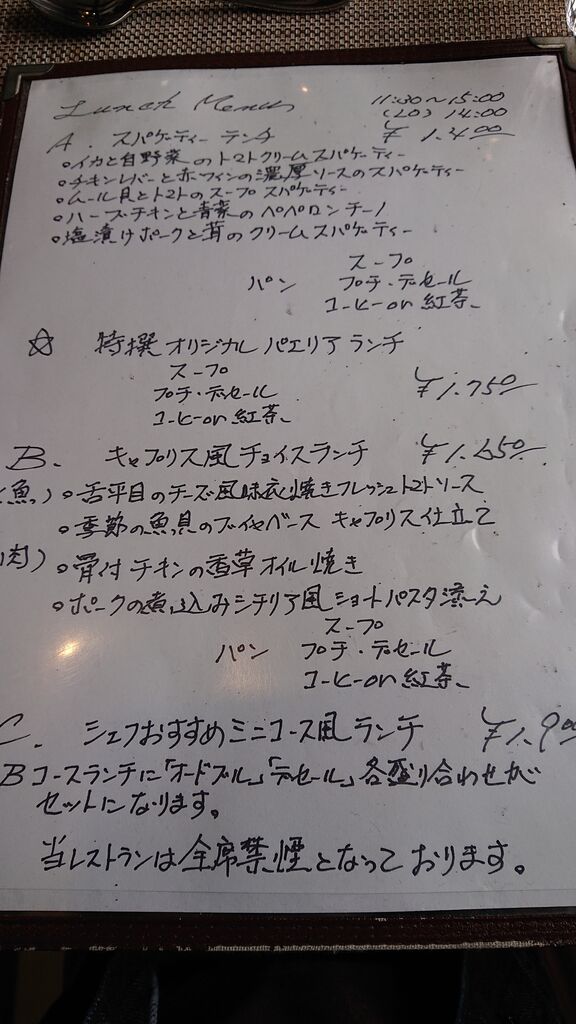 Lunch Menu
11:30〜15:00
(LO) 14:00
A. スパゲティー ランチ ¥1.400
。イカと白野菜のトマトクリームスパゲティー
。チキンレバーと赤ワインの濃厚ソースのスパゲティー
。ムール貝とトマトのスープ スパゲティー
。ハーブ・チキンと青菜のペペロンチーノ
。塩漬けポークと茸のクリームスパゲティー
スープ
パン プチ・デセール
コーヒーor紅茶
☆ 特撰オリジナルパエリア ランチ
スープ
プチ・デセール ¥1.750
コーヒーor紅茶
B. キャプリス風チョイスランチ ¥1.650
(魚) 。舌平目のチーズ風味衣焼きフレッシュトマトソース
。季節の魚貝のブイヤベース キャプリス仕立て
肉) 。骨付チキンの香草オイル焼き
。ポークの煮込みシチリア風ショートパスタ添え
スープ
パン プチ・デセール
コーヒーor紅茶
C. シェフおすすめミニコース風ランチ ¥1.900
Bコースランチに「オードブル」「デセール」各盛り合わせが
セットになります。
当レストランは全席禁煙となっております。